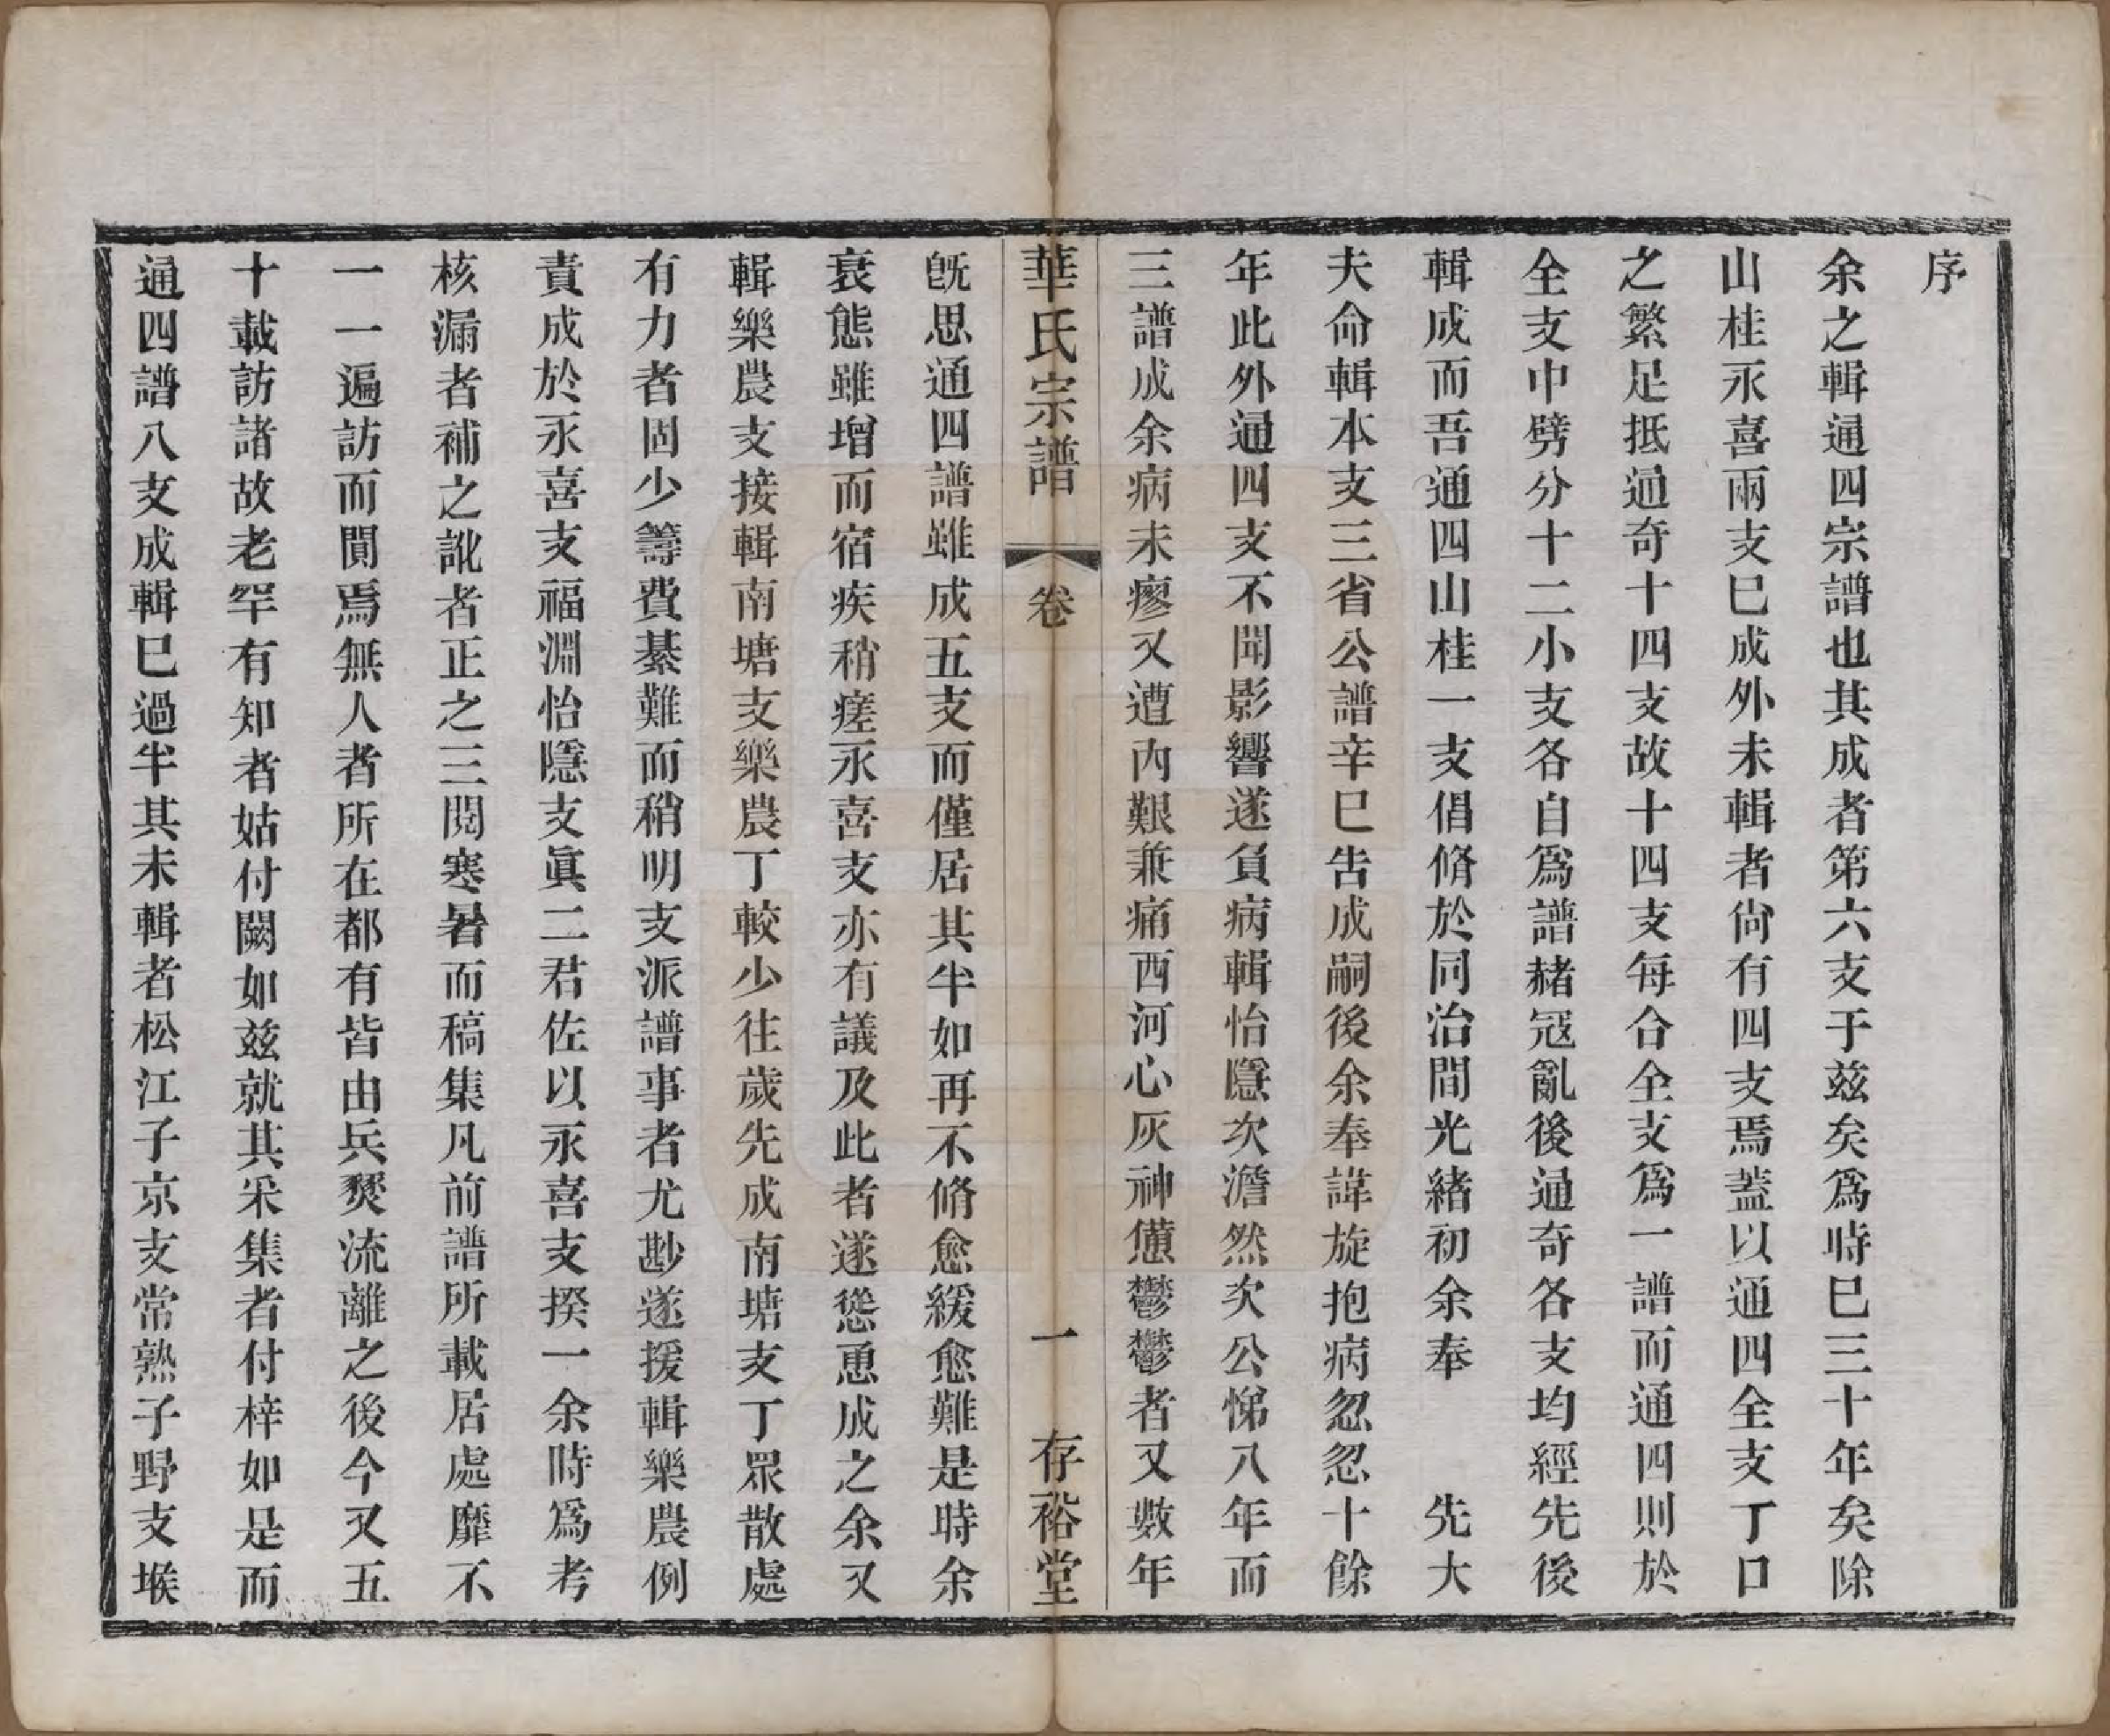 序
余之輯通四宗譜也其成者第六支于兹矣爲時巳三十年矣除
山桂永喜兩支巳成外未輯者尙有四支焉蓋以通四全支丁口
之繁足抵通奇十四支故十四支每合全支爲一譜而通四則於
全支中劈分十二小支各自爲譜赭冦亂後通奇各支均經先後
輯成而吾通四山桂一支倡脩於同治間光緒初余奉　　先大
夫命輯本支三省公譜辛巳告成嗣後余奉諱旋抱病忽忽十餘
年此外通四支不聞影響遂負病輯怡隱次澹然次公悌八年而
三譜成余病未瘳又遭內艱兼痛西河心灰神憊鬱鬱者又數年
華氏宗譜　卷　一　存裕堂
旣思通四譜雖成五支而僅居其半如再不脩愈緩愈難是時余
衰態雖增而宿疾稍瘥永喜支亦有議及此者遂慫恿成之余又
輯樂農支接輯南塘支樂農丁較少往歲先成南塘支丁眾散處
有力者固少籌費綦難而稍明支派譜事者尤尠遂援輯樂農例
責成於永喜支福淵怡隱支眞二君佐以永喜支揆一余時爲考
核漏者補之訛者正之三閱寒暑而稿集凡前譜所載居處靡不
一一遍訪而閴焉無人者所在都有皆由兵燹流離之後今又五
十載訪諸故老罕有知者姑付闕如兹就其采集者付梓如是而
通四譜八支成輯巳過半其未輯者松江子京支常熟子野支堠